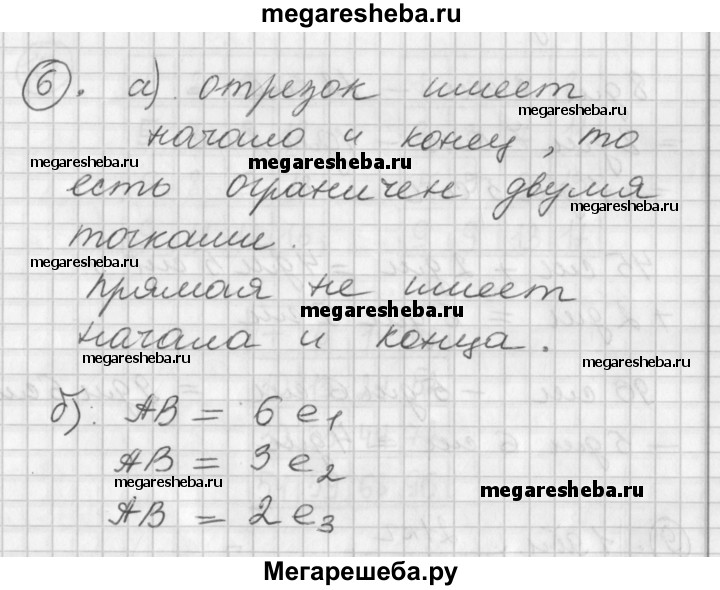 megaresheba.ru
6. а) отрезок имеет
megaresheba.ru
начало и конец, то
megaresheba.ru megaresheba.ru
есть ограничен двумя
megaresheba.ru
точками.
megaresheba.ru
прямая не имеет
megaresheba.ru
начала и конца.
megaresheba.ru megaresheba.ru
б) AB = 6 e1
AB = 3 e2
megaresheba.ru megaresheba.ru
AB = 2 e3
Мегарешеба.ру